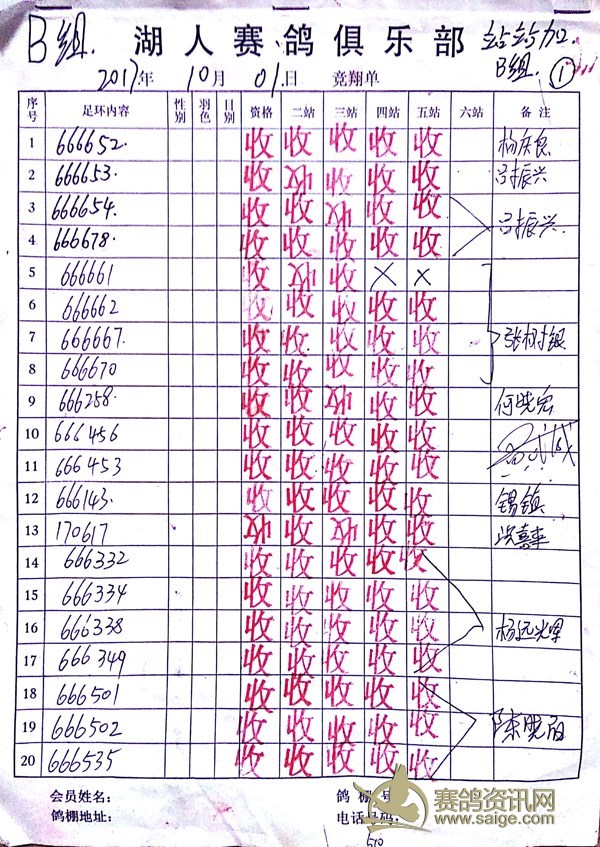 B组. 湖人赛鸽俱乐部 站站加.
B组. ①
2017年 10月 01日 竞翔单
序号 足环内容 性别 羽色 日别 资格 二站 三站 四站 五站 六站 备注
1 666652. 收 收 收 收 收 杨庆良
2 666653. 收 收 收 收 收 吕振兴
3 666654. 收 收 收 收 收
吕振兴.
4 666678. 收 收 收 收 收
5 666661 收 收 收 × ×
6 666662 收 收 收 收 收
7 666667. 收 收 收 收 收 张树银
8 666670 收 收 收 收 收
9 666258. 收 收 收 收 收 何晓宏
10 666456 收 收 收 收 收
11 666453 收 收 收 收 收
12 666143. 收 收 收 收 收 锡镇
13 170617 收 收 收 收 收 喜事
14 666332 收 收 收 收 收
15 666334 收 收 收 收 收
16 666338 收 收 收 收 收 杨远光
17 666349 收 收 收 收 收
18 666501 收 收 收 收 收
19 666502 收 收 收 收 收 陈晓
20 666535 收 收 收 收 收
会员姓名: 鸽棚号
鸽棚地址: 电话号码:
赛鸽资讯网
www.saige.com